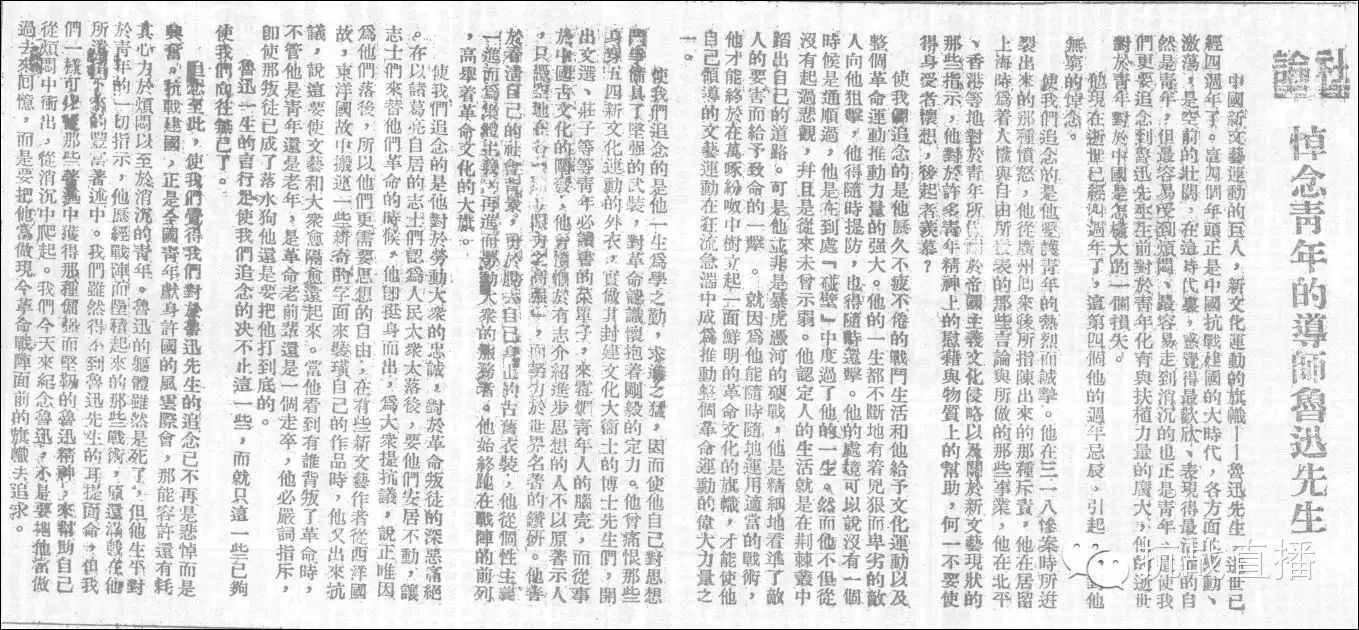 社論
悼念青年的導師魯迅先生
中國新文藝運動的巨人，新文化運動的旗幟——魯迅先生，逝世已
經四週年了。這四個年頭正是中國抗戰建國的大時代，各方面的波動、
激蕩，是空前的壯闊，在這時代裏，感覺得最歡欣、表現得最活躍的自
然是青年，但最容易受到煩悶、最容易走到消沉的也正是青年，這使我
們更要追念到魯迅先生生前對於青年化育與扶植力量的廣大，他的逝世
對於青年對於中國是怎樣大的一個損失。
他現在逝世已經四週年了，這第四個他的週年忌辰，引起 他
無窮的悼念。
使我們追念的是他愛護青年的熱烈而誠摯。他在三一八慘案時所迸
裂出來的那種憤怒，他從廣州他來後所指陳出來的那種斥責，他在居留
上海時爲着人權與自由所發表的那些言論與所做的那些事業，他在北平
、香港等地對於青年所 於帝國主義文化侵略以及關於新文藝現狀的
那些指示，他對於許多青年精神上的慰藉與物質上的幫助，何一不要使
得身受者懷想，後起者羨慕？
使我們追念的是他歷久不疲不倦的戰鬥生活和他給予文化運動以及
整個革命運動推動力量的强大。他的一生都不斷地有着兇狠而卑劣的敵
人向他狙擊，他得隨時提防，也得隨時還擊。他的處境可以說沒有一個
時候是通順過，他是在到處『碰壁』中度過了他的一生。然而他不但從
沒有起過悲觀，幷且是從來未曾示弱。他認定人的生活就是在荆棘叢中
蹈出自己的道路。可是他並非是暴虎憑河的硬戰，他是精細地看準了敵
人的要害而給予致命的一擊。就因為他能隨時隨地運用適當的戰術，
他才能終於在萬喙紛呶中樹立起一面鮮明的革命文化的旗幟，才能使他
自己領導的文藝運動在狂流急湍中成爲推動整個革命運動的偉大力量之
一。
使我們追念的是他一生爲學之勤，求進之猛，因而使他自己對思想
鬥爭備具了堅强的武裝，對革命認識懷抱着剛毅的定力。他曾痛恨那些
身穿五四新文化運動的外衣，實做其封建文化大衛士的博士先生們，開
出文選、莊子等等青年必讀書的菜單子，來霉爛青年人的腦壳，而從事
於中國舊古文化的闡發，他曾憤慨於有志介紹進步思想的人不以原著示人
，只 地在 照，而努力於世界名著的鑽研。他善
於看清自己的社會背景，勇於脫去自己身上的古舊衣裝，他從個性主義
一進而爲集體主義，再進而勞動大衆的服務者。他始終跑在戰陣的前列
，高舉着革命文化的大旗。
使我們追念的是他對於勞動大衆的忠誠，對於革命叛徒的深惡痛絕
。在以諸葛亮自居的志士們認爲人民太落後，要他們安居不動，讓
志士們來替他們革命的時候，他卽挺身而出，爲大衆提抗議，說正唯因
爲他們落後，所以他們更需要思想的自由，在有些新文藝作者從西洋國
故，東洋國故中搬運一些新奇的字面來裝璜自己的作品時，他又出來抗
議，說這要使文藝和大衆愈隔愈遠起來。當他看到有誰背叛了革命時，
不管他是青年還是老年，是革命老前輩還是一個走卒，他必嚴詞指斥，
卽使那叛徒已成了落水狗他還是要把他打到底的。
魯迅一生的言行足使我們追念的決不止這一些，而就只這一些已夠
使我們向往無已了。
追念至此，使我們覺得我們對於魯迅先生的追念已不再是悲悼而是
興奮。抗戰建國，正是全國青年獻身許國的風雲際會，那能容許還有耗
其心力於煩悶以至於消沉的青年。魯迅的軀體雖然是死了，但他生平對
於青年的一切指示，他歷經戰陣而累積起來的那些戰術，還滿載在他
所遺留下來的豐富著述中。我們雖然得不到魯迅先生的耳提面命，但我
們一樣可從那些著述中獲得那種倔强而堅韌的魯迅精神，來幫助自己
從煩悶中衝出，從消沉中爬起。我們今天來紀念魯迅，不是要把他當做
過去來回憶，而是要把他當做現今革命戰陣面前的旗幟去追求。
抗戰直播